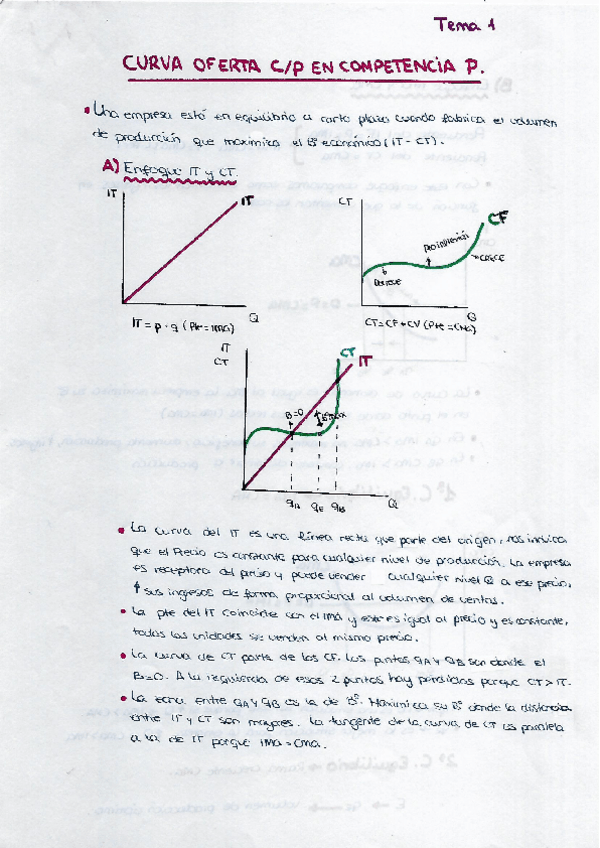 Tema 1
CURVA OFERTA C/P EN COMPETENCIA P.
• Una empresa está en equilibrio a corto plazo cuando fabrica el volumen
de producción que maximiza el Bº económico (IT - CT).
A) Enfoque IT y CT.
IT
IT
Q
IT = p · q (Pte = IMa)
CT
CF
Decrece
pto inflexión
CRECE
Q
CT = CF + CV (Pte = CMa)
IT
CT
CT
IT
B=0
Bº max
qA qE qB
Q
• La curva del IT es una línea recta que parte del origen, nos indica
que el Precio es constante para cualquier nivel de producción. La empresa
es receptora del precio y puede vender cualquier nivel Q a ese precio,
↑ sus ingresos de forma proporcional al volumen de ventas.
• La pte del IT coincide con el IMa y este es igual al precio y es constante,
todas las unidades se venden al mismo precio.
• La curva de CT parte de los CF. Los puntos qA y qB son donde el
B=0. A la izquierda de esos 2 puntos hay pérdidas porque CT > IT.
• La zona entre qA y qB es la de Bº. Maximiza su Bº donde la distancia
entre IT y CT son mayores. La tangente de la curva de CT es paralela
a la de IT porque IMa = CMa.